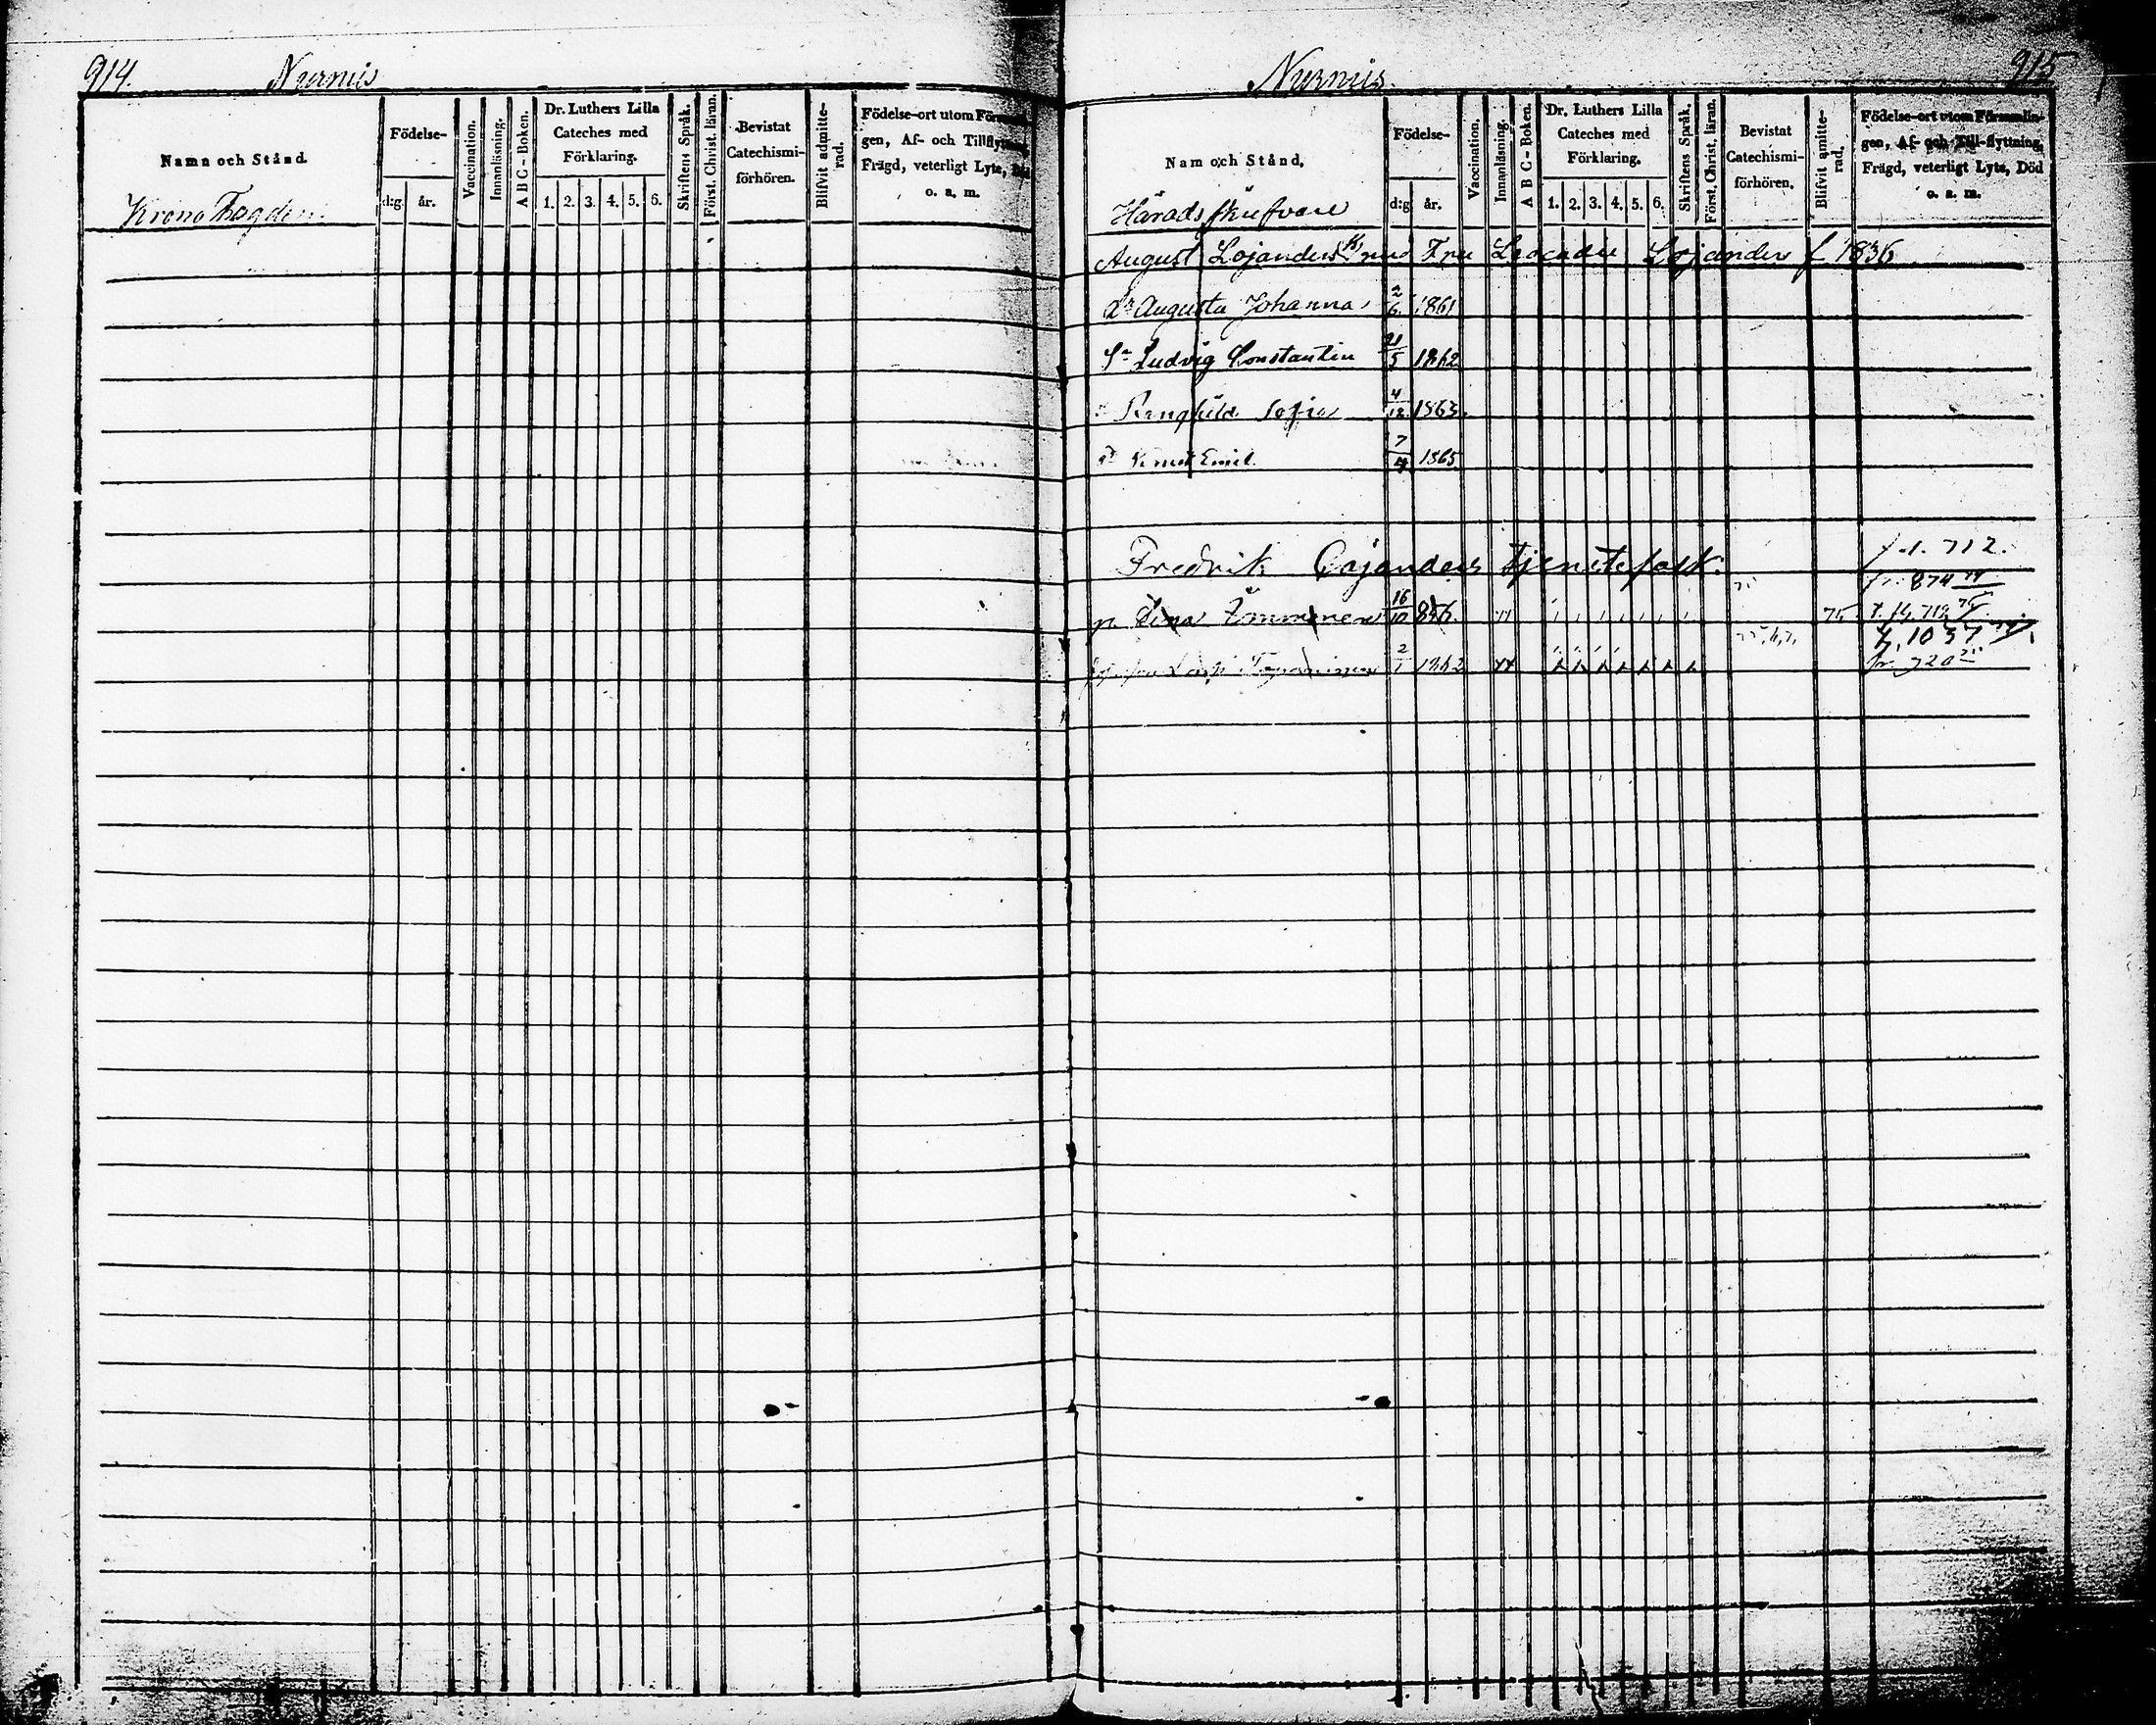 914. Nurmis
Namn och Stånd.
Födelse-
d:g. år.
Vaccination.
Innanläsning.
A B C - Boken.
Dr. Luthers Lilla
Cateches med
Förklaring.
1. 2. 3. 4. 5. 6.
Skriftens Språk.
Först. Christ. läran.
Bevistat
Catechismi-
förhören.
Blifvit admitte-
rad.
Födelse-ort utom
gen, Af- och
Frägd, veterligt Lyte, Död
o. s. m.
Krono Fogden.
Nurmis. 915
Nam och Stånd.
Födelse-
d:g år.
Vaccination.
Innanläsning.
A B C - Boken.
Dr. Luthers Lilla
Cateches med
Förklaring.
1. 2. 3. 4. 5. 6.
Skriftens Språk.
Först. Christ. läran.
Bevistat
Catechismi-
förhören.
Blifvit amitte-
rad.
Födelse-ort utom Församlin-
gen, Af- och Till-flyttning,
Frägd, veterligt Lyte, Död
o. s. m.
Härads skrifvare
August Lojanders Fru Leocadie Lojander f 1836
Augusta Johanna 2/6 1861
Sn Ludvig Constantin 21/5 1862
Sofia 4/12 1863
Knut Emil. 7/4 1865
Fredrik Cojanders tjenstefolk. 712.
874
Lina 16/10 856. 75
1037
2/1 1862 720